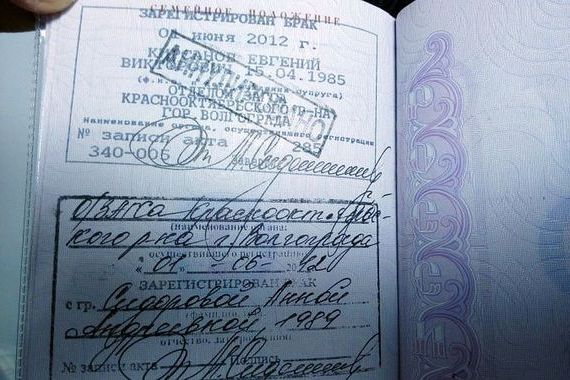 СЕМЕЙНОЕ ПОЛОЖЕНИЕ
ЗАРЕГИСТРИРОВАН БРАК
01 июня 2012 г.
ЕВГЕНИЙ
ВИКТОРОВИЧ 15.04.1985
ОТДЕЛОМ ЗАГСА
КРАСНООКТЯБРЬСКОГО Р-НА
ГОР. ВОЛГОГРАДА
Наименование органа, осуществившего регистрацию
№ записи акта 285
340-006
о/ЗАГСа Красноокт.
кого р-на г. Волгограда
осуществившего регистрацию
« 01 » 06 2012
ЗАРЕГИСТРИРОВАН БРАК
с гр. Сидоровой Анной
Андреевной, 1989
№ записи акта Подпись